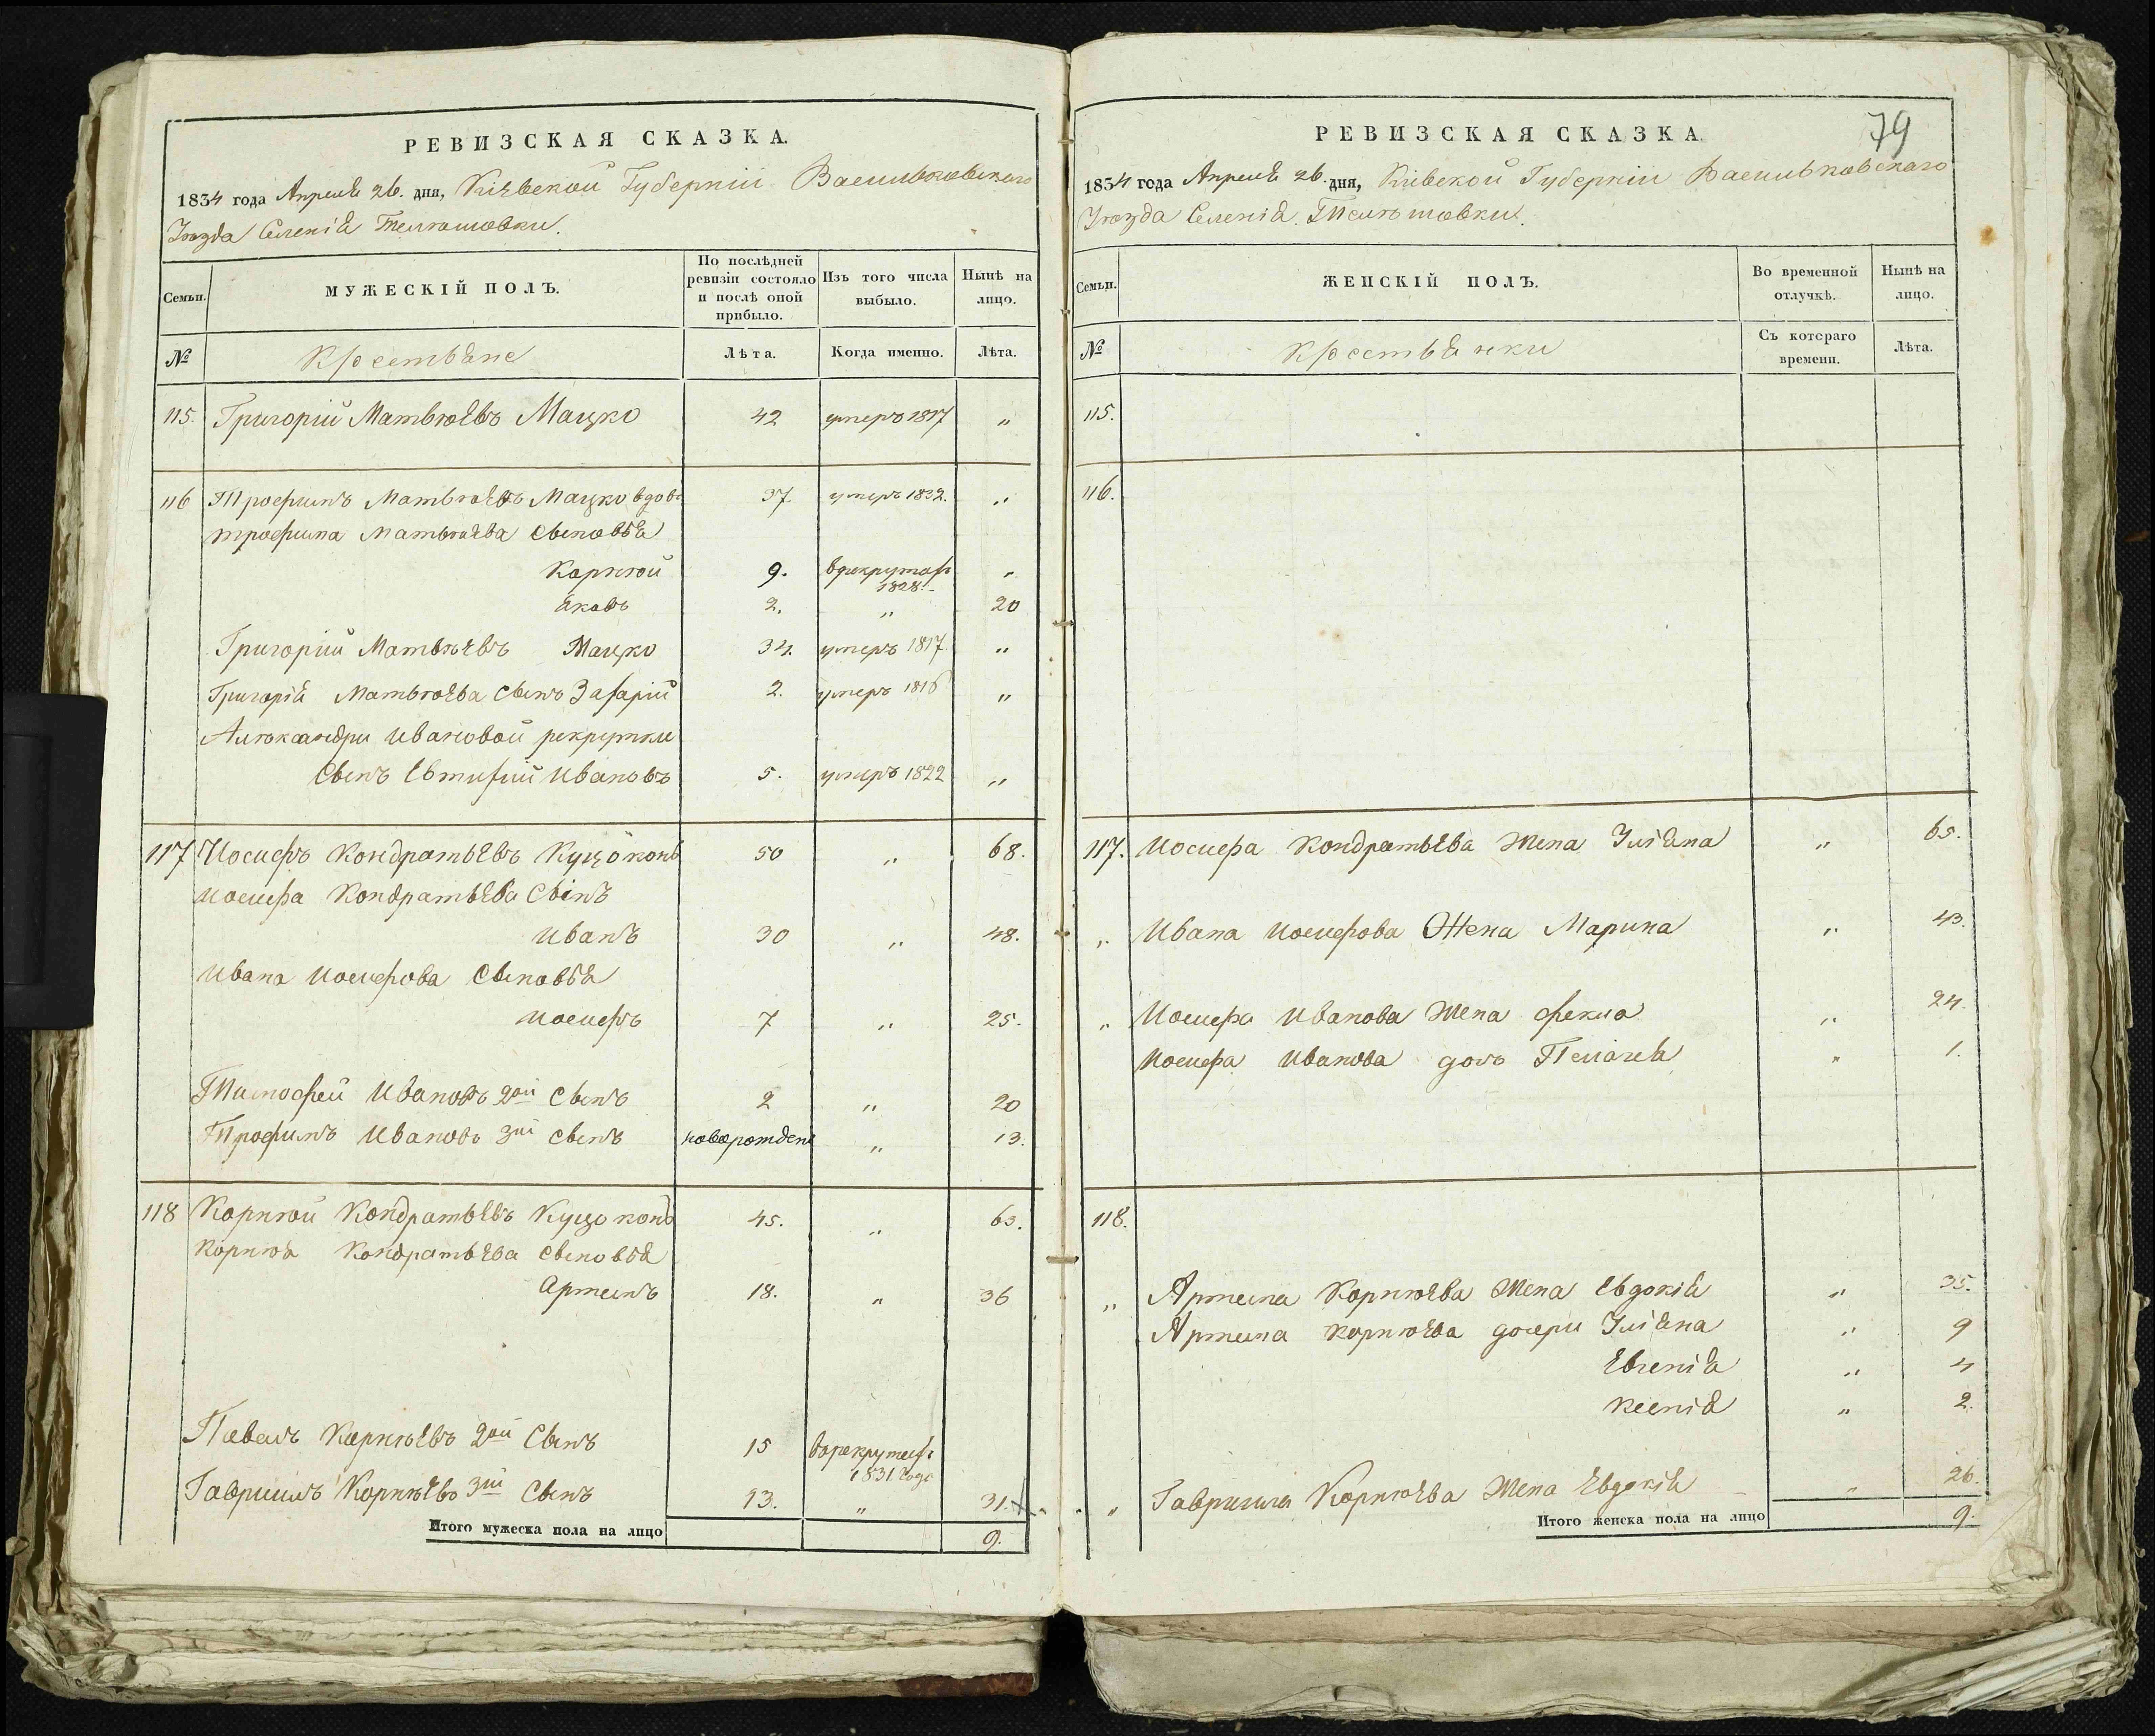 РЕВИЗСКАЯ СКАЗКА.
1834 года Апреля 26. дня, Кіевской Губерніи Васильковскаго
Уѣзда Селенія Телѣшовки.
Семьи.
МУЖЕСКІЙ ПОЛЪ.
По послѣдней ревизіи состояло и послѣ оной прибыло.
Изъ того числа выбыло.
Нынѣ на лицо.
№
Крестьяне
Лѣта.
Когда именно.
Лѣта.
115. Григорій Матвѣевъ Мацко 42 умеръ 1817 „
116 Трофимъ Матвѣевъ Мацко 37. умеръ 1822. „
трофима Матвѣева Сыновья
Корнѣй 9. врекрутах 1828. „
Яковъ 2. „ 20
Григорій Матвѣевъ Мацко 34. умеръ 1817 „
Григорія Матвѣева Сынъ Захарій 2. умеръ 1816 „
Алѣксандри Ивановой рекрутки
Сынъ Евтихій Ивановъ 5. умеръ 1822 „
117 Иосифъ Кондратьевъ Куцоконь 50 „ 68.
Иосифа Кондратьева Сынъ
Иванъ 30 „ 48.
Ивана Иосифова Сыновья
Иосифъ 7 „ 25.
Тимофей Ивановъ 2ой Сынъ 2 „ 20
Трофимъ Ивановъ 3ій Сынъ новорожден „ 13.
118 Корнѣй Кондратьевъ Куцоконь 45. „ 63.
Корнѣя Кондратьева Сыновья
Артемъ 18. „ 36
Павелъ Корнѣевъ 2ой Сынъ 15 врекрутах 1831 года
Гавриилъ Корнѣевъ 3ій Сынъ 13. „ 31.
Итого мужеска пола на лицо 9.
79
РЕВИЗСКАЯ СКАЗКА.
1834 года Апреля 26. дня, Кіевской Губерніи Васильковскаго
Уѣзда Селенія Телѣшовки.
Семьи.
ЖЕНСКІЙ ПОЛЪ.
Во временной отлучкѣ.
Нынѣ на лицо.
№
Крестьянки
Съ котораго времени.
Лѣта.
115.
116.
117. Иосифа Кондратьева жена Уліяна „ 65.
„ Ивана Иосифова Жена Марина „ 43.
„ Иосифа Иванова жена фекла „ 24.
Иосифа Иванова дочь Пелагея „ 1.
118.
„ Артема Корнѣева жена Евдокія „ 35.
Артема Корнѣева дочери Уліяна „ 9
Евгенія „ 4
Ксенія „ 2.
„ Гавриила Корнѣева жена Евдокія „ 26.
Итого женска пола на лицо 9.